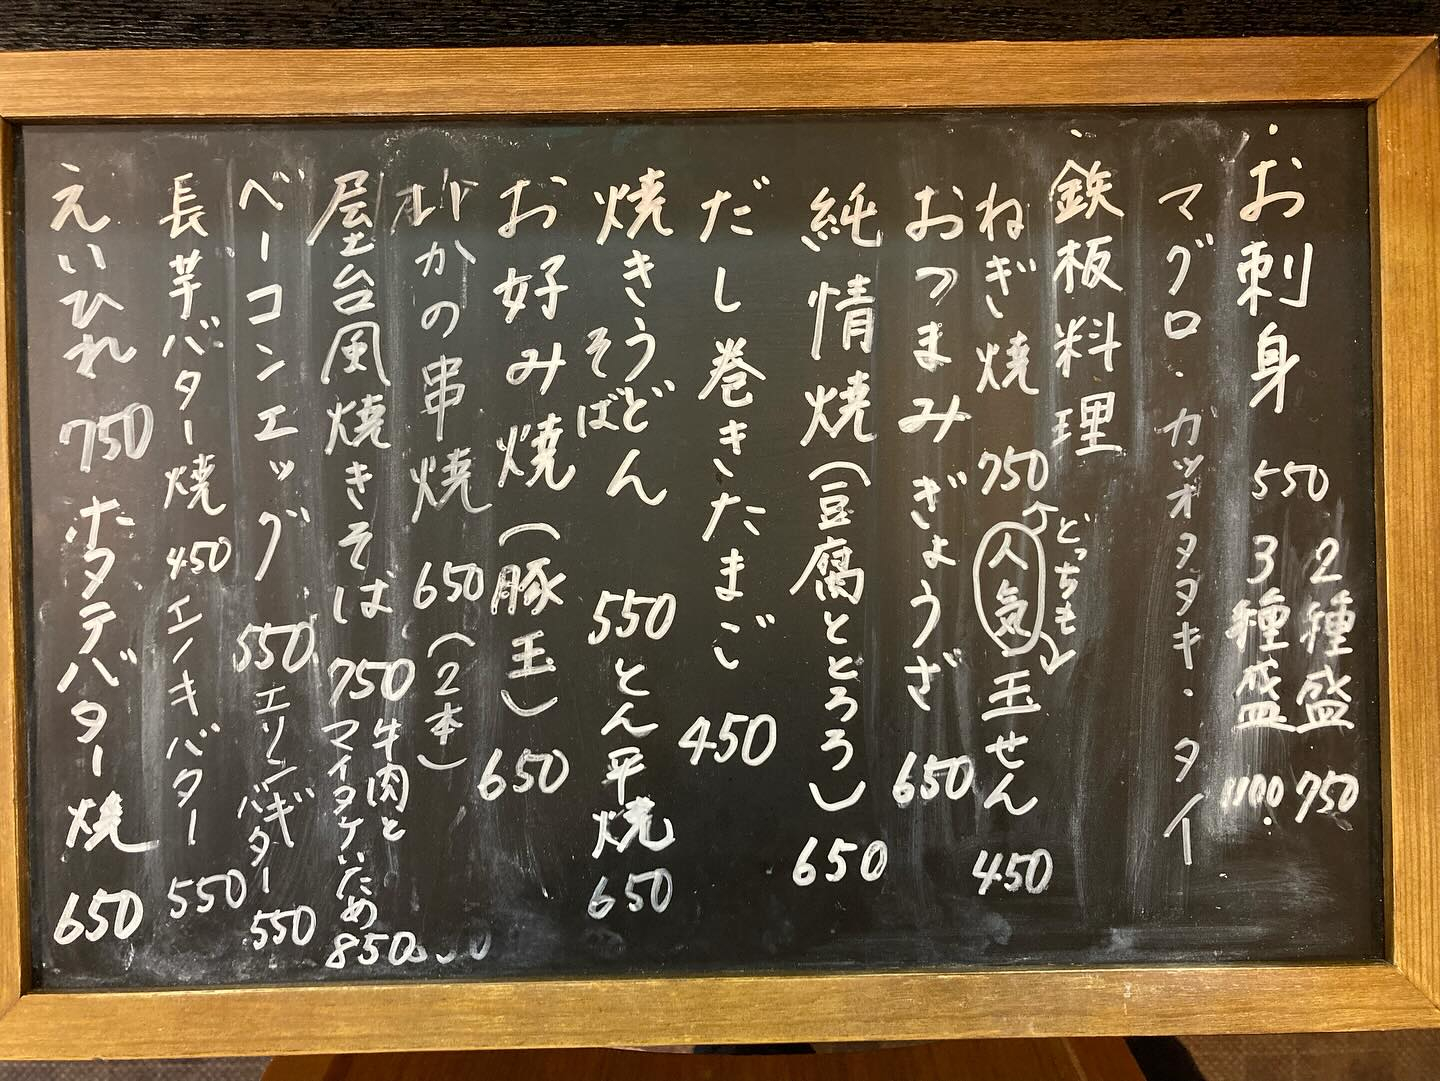 お刺身 550 2種盛 750
3種盛 1100
マグロ・カツオタタキ・タイ
鉄板料理
ねぎ焼 750 人気 玉せん 450
どっちも
おつまみぎょうざ 650
純情焼(豆腐ととろろ) 650
だし巻きたまご 450
焼きうどん 550 とん平焼 650
そば
お好み焼(豚玉) 650
いかの串焼 650(2本)
屋台風焼きそば 750 牛肉と
マイタケいため 850
ベーコンエッグ 550 エリンギ
バター 550
長芋バター焼 450 エノキバター 550
えいひれ 750 ホタテバター焼 650